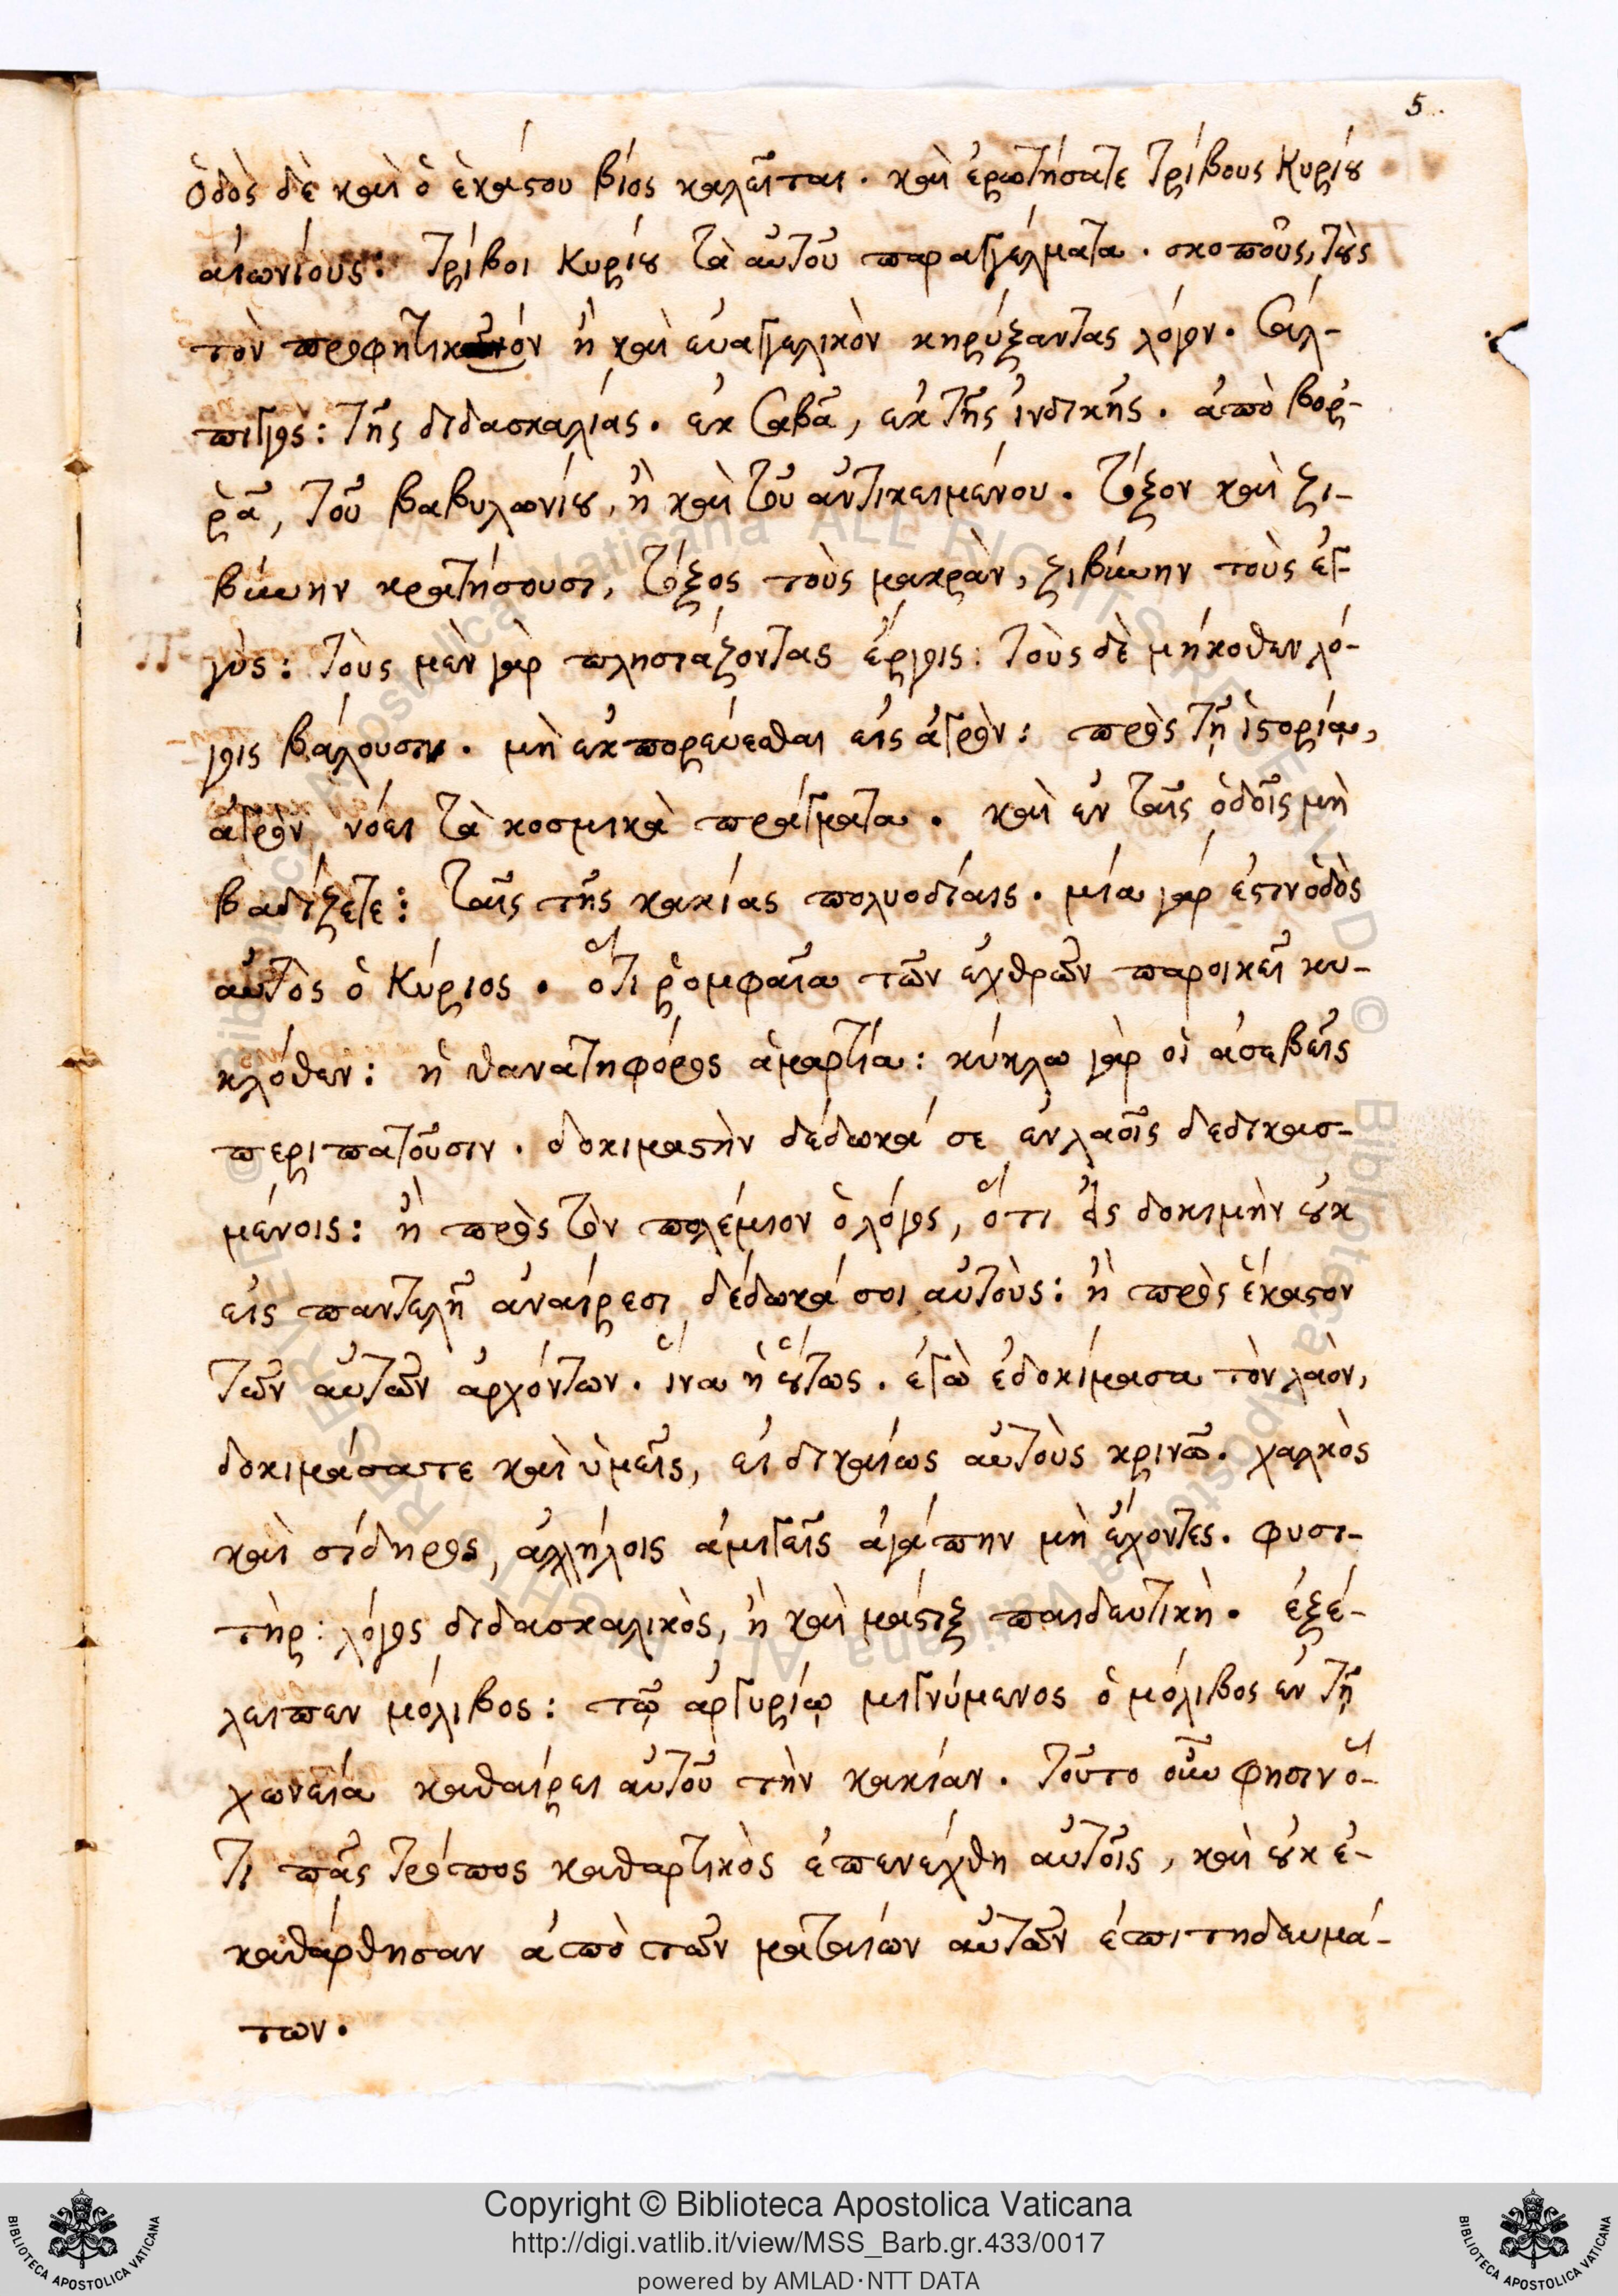 5.
ὁδὸς δὲ καὶ ὁ ἑκάστου βίος καλεῖται. καὶ ἐρωτήσατε τρίβους Κυρίου
αἰωνίους: τρίβοι Κυρίου τὰ αὐτοῦ παραγγέλματα. σκοποὺς, τοὺς
τὸν προφητικὸν ἢ καὶ εὐαγγελικὸν κηρύξαντας λόγον. σάλ-
πιγγος: τῆς διδασκαλίας. ἐκ Σαβᾶ, ἐκ τῆς ἰνδικῆς. ἀπὸ βορ-
ρᾶ, τοῦ βαβυλωνίου, ἢ καὶ τοῦ ἀντικειμένου. τόξον καὶ ζι-
βύνην κρατήσουσι, τόξος τοὺς μακρὰν, ζιβύνην τοὺς ἐγ-
γύς: τοὺς μὲν γὰρ πλησιάζοντας ἔργοις: τοὺς δὲ μήκοθεν λό-
γοις βάλουσιν. μὴ ἐκπορεύεσθαι εἰς ἀγρὸν: πρὸς τῇ ἱστορίᾳ,
ἀγρὸν νόει τὰ κοσμικὰ πράγματα. καὶ ἐν ταῖς ὁδοῖς μὴ
βαδίζετε: ταῖς τῆς κακίας πολυοδίαις. μία γάρ ἐστιν ὁδὸς
αὐτὸς ὁ Κύριος. ὅτι ῥομφαῖα τῶν ἐχθρῶν παροικεῖ κυ-
κλόθεν: ἡ θανατηφόρος ἁμαρτία: κύκλω γὰρ οἱ ἀσεβεῖς
περιπατοῦσιν. δοκιμαστὴν δέδωκά σε ἐν λαοῖς δεδικασ-
μένοις: ἢ πρὸς τὸν πολέμιον ὁ λόγος, ὅτι εἰς δοκιμὴν οὐκ
εἰς παντελῆ ἀναίρεσι δέδωκά σοι αὐτοὺς: ἢ πρὸς ἕκαστον
τῶν αὐτῶν ἀρχόντων. ἵνα ἦ οὕτως. ἐγὼ ἐδοκίμασα τὸν λαὸν,
δοκιμάσατε καὶ ὑμεῖς, εἰ δικαίως αὐτοὺς κρινῶ. χαλκὸς
καὶ σίδηρος, ἀλλήλοις ἀμιγεῖς ἀγάπην μὴ ἔχοντες. φυσι-
τὴρ: λόγος διδασκαλικὸς, ἢ καὶ μάστιξ παιδευτικὴ. ἐξέ-
λειπεν μόλιβος: τῷ ἀργυρίῳ μιγνύμενος ὁ μόλιβος ἐν τῇ
χωνεία καθαίρει αὐτοῦ τὴν κακίαν. τοῦτο οὖν φησιν ὅ-
τι πᾶς τρόπος καθαρτικὸς ἐπενέχθη αὐτοῖς, καὶ οὐκ ἐ-
καθάρθησαν ἀπὸ τῶν ματαιῶν αὐτῶν ἐπιτηδευμά-
των.
Copyright © Biblioteca Apostolica Vaticana
http://digi.vatlib.it/view/MSS_Barb.gr.433/0017
powered by AMLAD·NTT DATA
BIBLIOTECA APOSTOLICA VATICANA
BIBLIOTECA APOSTOLICA VATICANA